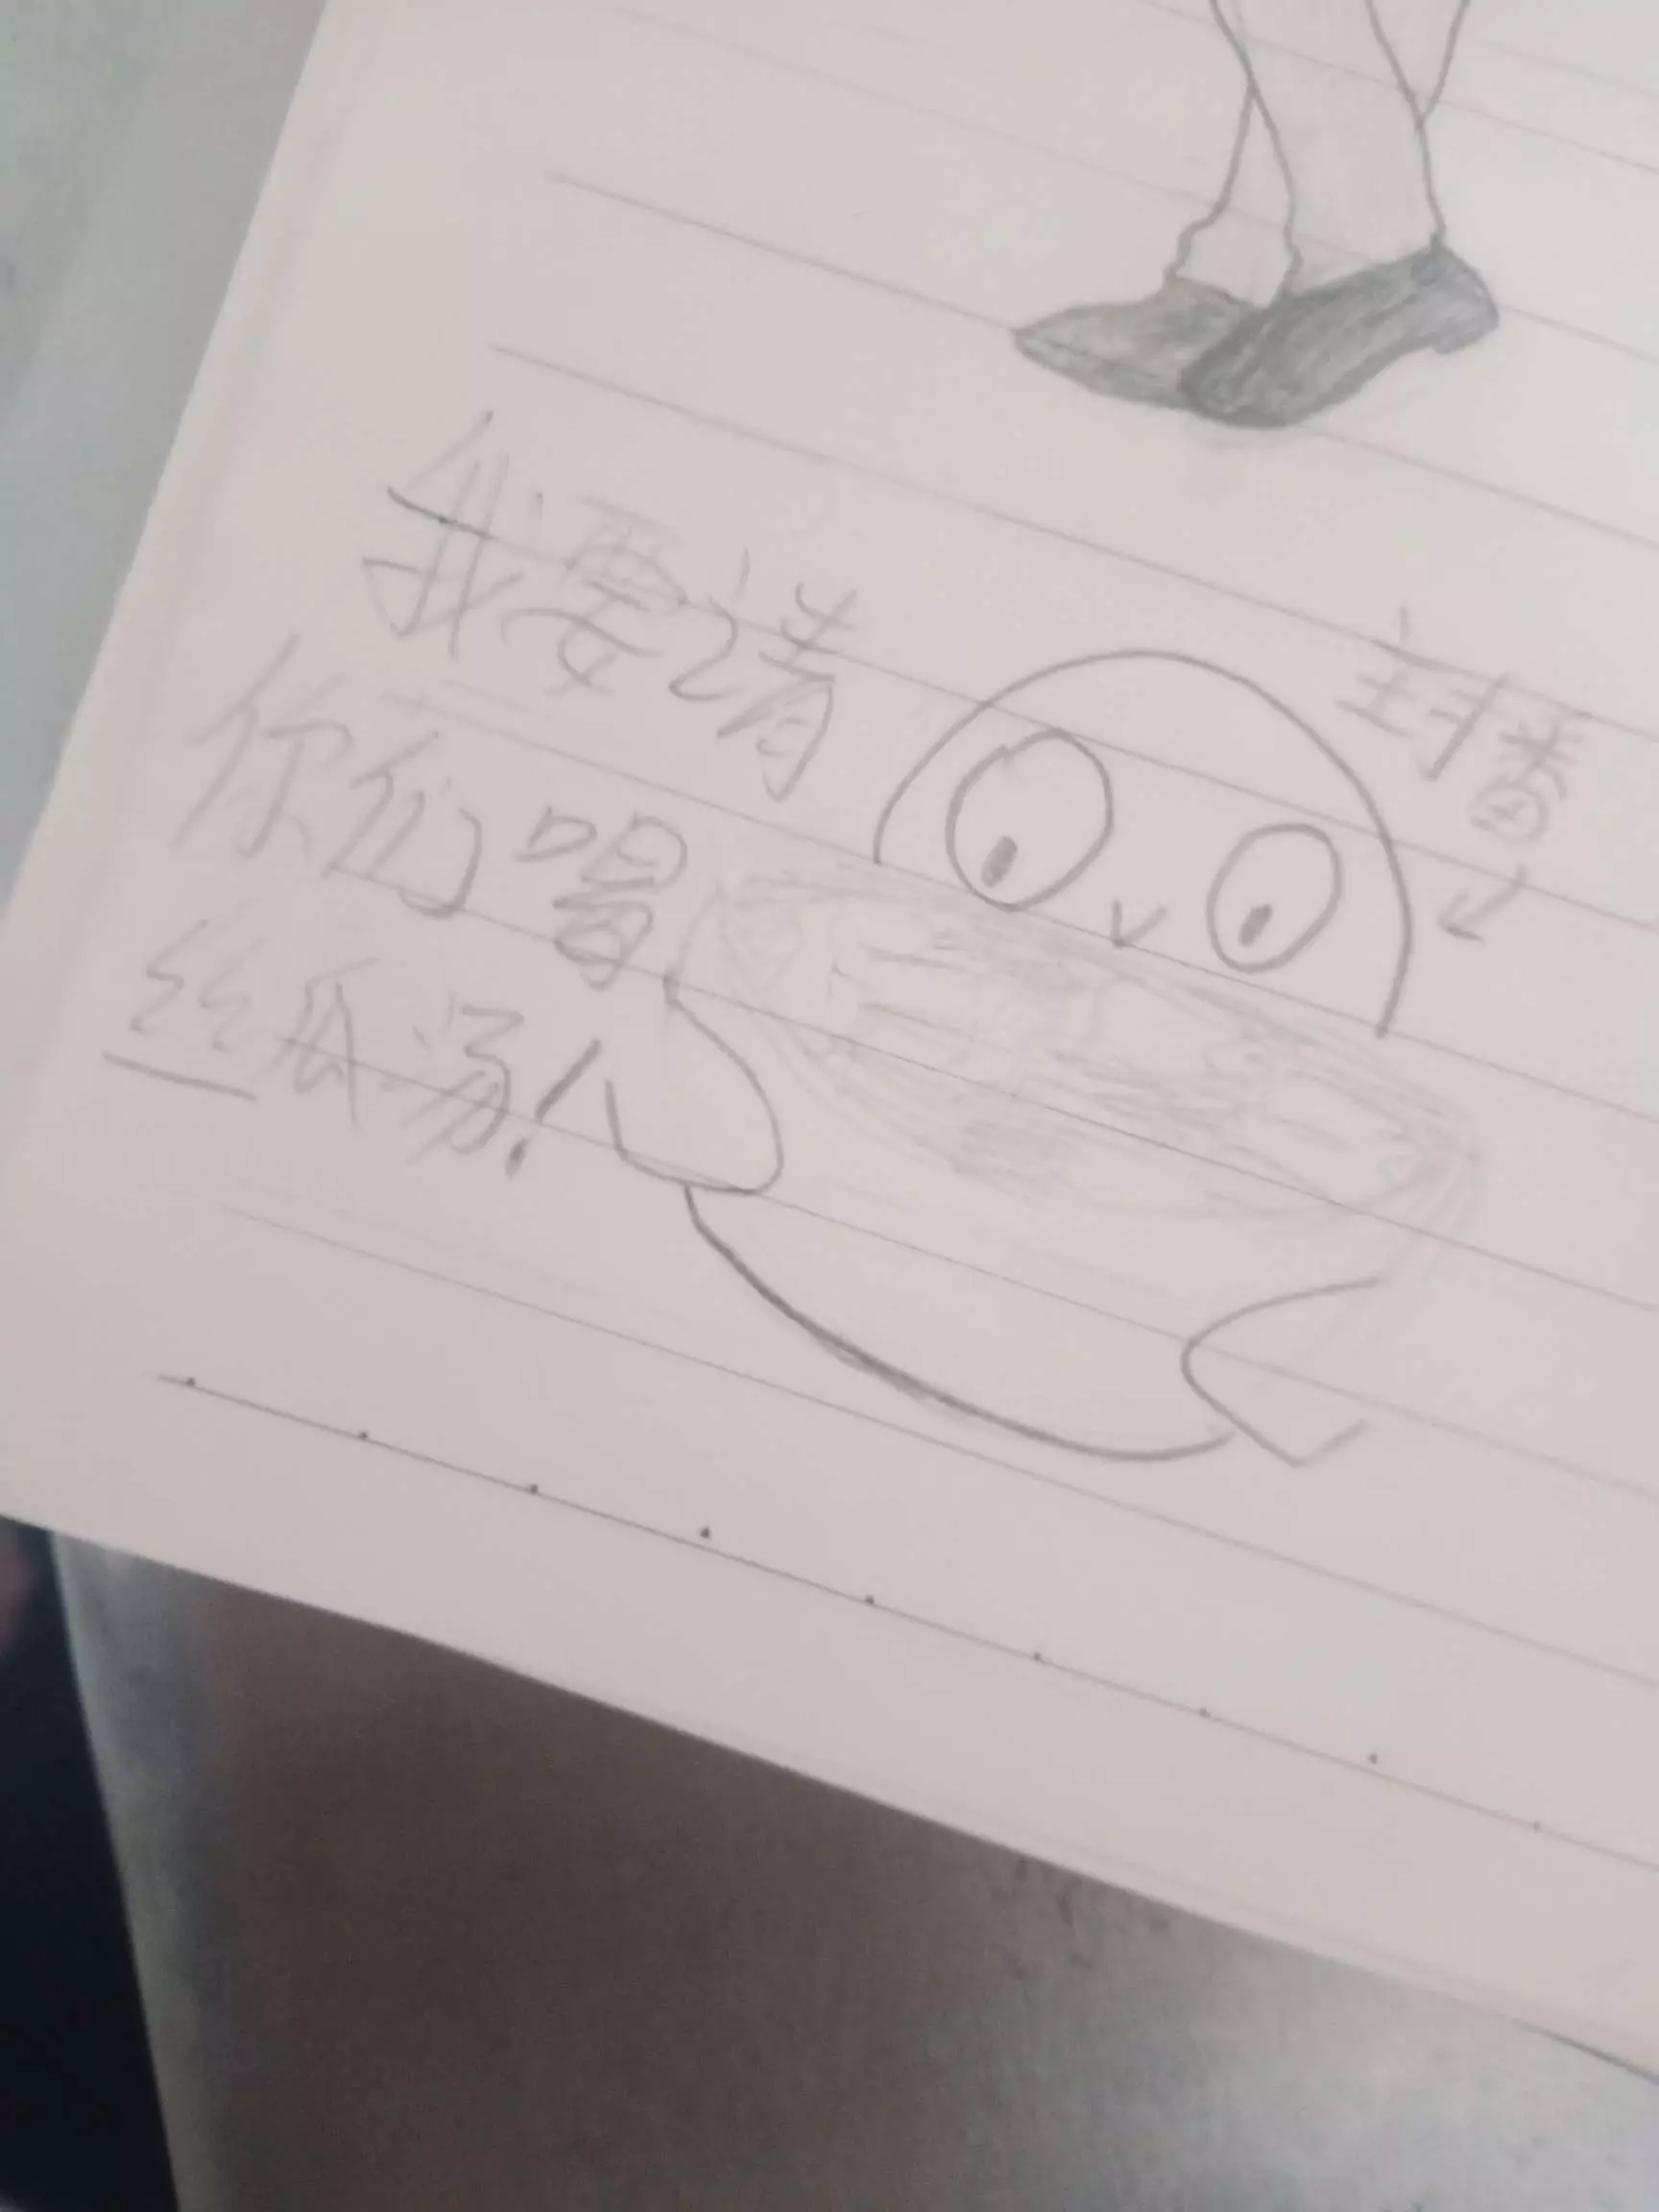 我要请
你们喝
丝瓜汤!
主播